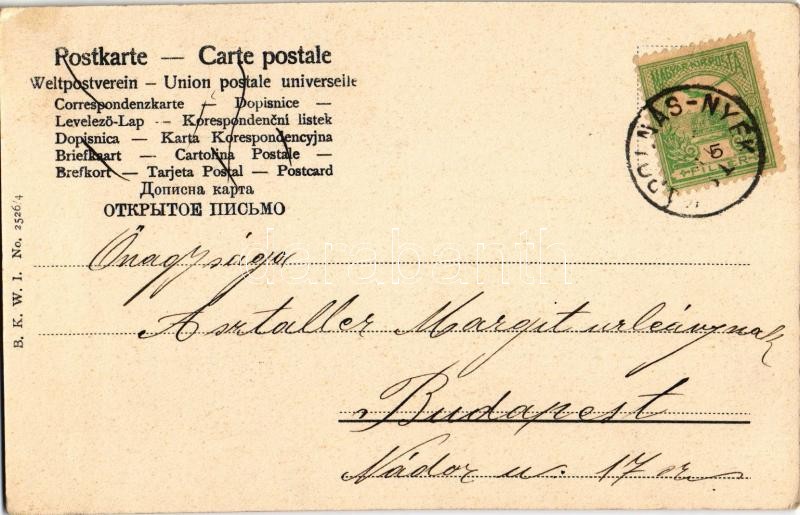 Postkarte — Carte postale
Weltpostverein – Union postale universelle
Correspondenzkarte — Dopisnice —
Levelező-Lap -- Korespondenční listek
Dopisnica — Karta Korespondencyjna
Briefkaart — Cartolina Postale —
Brefkort — Tarjeta Postal — Postcard
Дописна карта
ОТКРЫТОЕ ПИСЬМО
MAGYAR KIR. POSTA
NAS-NYÉK
5
FILLÉR
B. K. W. I. No. 2526/4
darabanth
Őnagysága
Asztaller Margit urleánynak
Budapest
Nádor u. 17 sz.